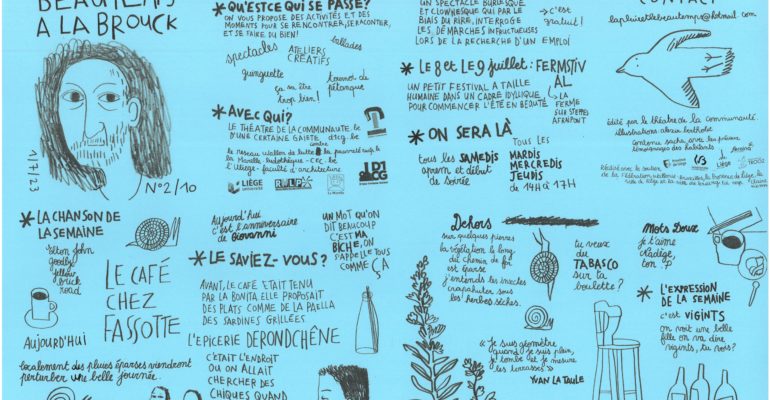 BEAUTEMPS
A LA BROUCK
1/7/23
N°2/10
* QU'ESTCE QUI SE PASSE?
ON VOUS PROPOSE DES ACTIVITÉS ET DES
MOMENTS POUR SE RENCONTRER, SE RACONTER,
ET SE FAIRE DU BIEN!
spectacles
ATELIERS
CRÉATIFS
ballades
guinguette
ça va être
trop bien!
tournoi de
pétanque
* AVEC QUI?
LE THÉATRE DE LA COMMUNAUTÉ. be
D'UNE CERTAINE GAIETÉ dtcg.be
le reseau wallon de lutte contre la pauvreté rwlp.be
la Marelle ludothèque - CEC. be
l'Uliege - faculté d'architecture
LIÈGE
RWLP
D1CG
UN SPECTACLE BURLESQUE
ET CLOWNESQUE QUI PAR LE
BIAIS DU RIRE, INTERROGE
LES DÉMARCHES INFRUCTUEUSES
LORS DE LA RECHERCHE D'UN EMPLOI
c'est
gratuit!
* LE 8 et LE 9 juillet: FERMSTIV
AL
UN PETIT FESTIVAL A TAILLE
HUMAINE DANS UN CADRE IDYLLIQUE
POUR COMMENCER L'ÉTÉ EN BEAUTÉ
LA
FERME
SUR STEPPES
* ON SERA LÀ
tous les SAMEDIS
aprem et début
de soirée
TOUS LES
MARDIS
MERCREDIS
JEUDIS
de 14H à 17H
CONTACT
lapluieetlebeautemps@hotmail.com
édité par le théâtre de la communauté.
illustrations alexia berthotie
témoignage des habitants
Rédigé avec le soutien
de la Fédération wallonie bruxelles
* LA CHANSON DE
LA SEMAINE
Elton John
goodbye
yellow
brick
road
LE CAFÉ
CHEZ
FASSOTTE
AUJOURD'HUI
localement des pluies éparses viendront
perturber une belle journée.
Aujourd'hui
c'est l'anniversaire
de Giovanni
UN MOT QU'ON
DIT BEAUCOUP
C'EST MA
BICHE, ON
S'APPELLE TOUS
COMME ÇA
* LE SAVIEZ-VOUS?
AVANT, LE CAFÉ ETAIT TENU
PAR LA BONITA ELLE PROPOSAIT
DES PLATS COMME DE LA PAELLA
DES SARDINES GRILLÉES
L'EPICERIE DERONDCHÊNE
C'ÉTAIT L'ENDROIT
OU ON ALLAIT
CHERCHER DES
CHIQUES QUAND
Dehors
sur quelques pierres
la végétation le long
du chemin de fer
est éparse
j'entends les insectes
crapahuter sous
les herbes sèches.
tu veux
du
TABASCO
sur ta
boulette?
« Je suis géomètre
quand je suis plein,
je tombe et je mesure
les terrasses »
YVAN LA TAULE
Mots Doux
je t'aime
Nadège,
ton P
* L'EXPRESSION
DE LA SEMAINE
c'est VIGINTS
on voit une belle
fille on va dire
vigints, tu vois?